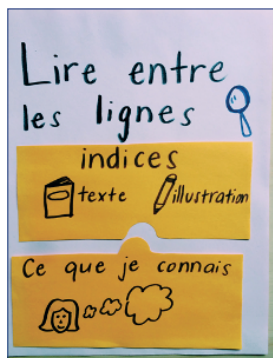 Lire entre
les lignes
indices
texte illustration
Ce que je connais